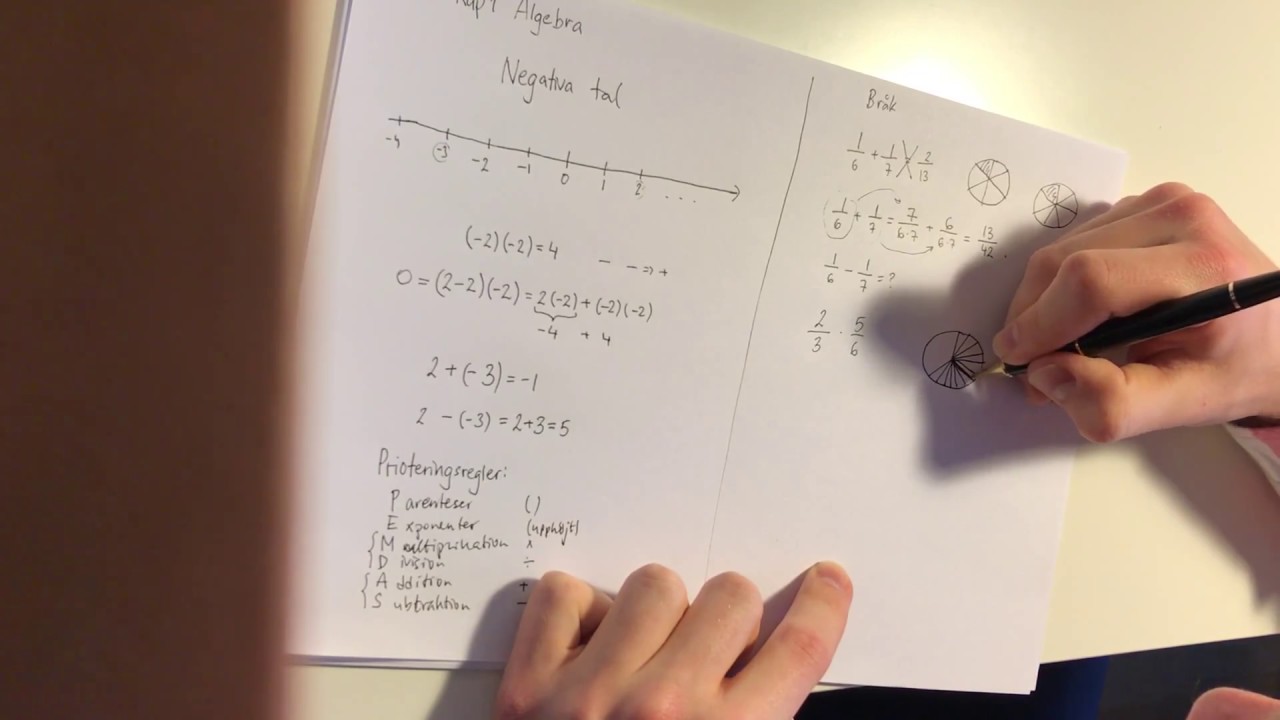 Kap 1 Algebra
Negativa tal
-4 -3 -2 -1 0 1 2 ...
(-2)(-2)=4 - - => +
0=(2-2)(-2)=2(-2)+(-2)(-2)
-4 + 4
2+(-3)=-1
2 -(-3)=2+3=5
Prioteringsregler:
Parenteser ()
Exponenter (upphöjt)
Multiplikation x
Division ÷
Addition +
Subtraktion -
Bråk
1/6 + 1/7 2/13
1/6 + 1/7 = 7/6·7 + 6/6·7 = 13/42.
1/6 - 1/7 = ?
2/3 · 5/6